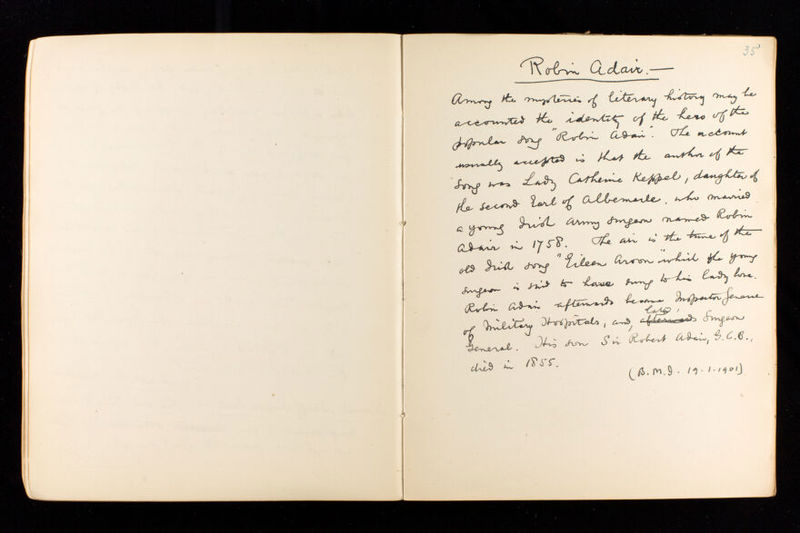 35
Robin Adair.—
Among the mysteries of literary history may be
accounted the identity of the hero of the
popular song "Robin Adair". The account
usually accepted is that the author of the
song was Lady Catherine Keppel, daughter of
the second Earl of Albemarle, who married
a young Irish army surgeon named Robin
Adair in 1758. The air is the tune of the
old Irish song "Eileen Aroon" which the young
surgeon is said to have sung to his lady love.
Robin Adair afterwards became Inspector General
of Military Hospitals, and, later, afterwards Surgeon
General. His son Sir Robert Adair, G.C.B.,
died in 1855.
(B.M.J. 19.1.1901)